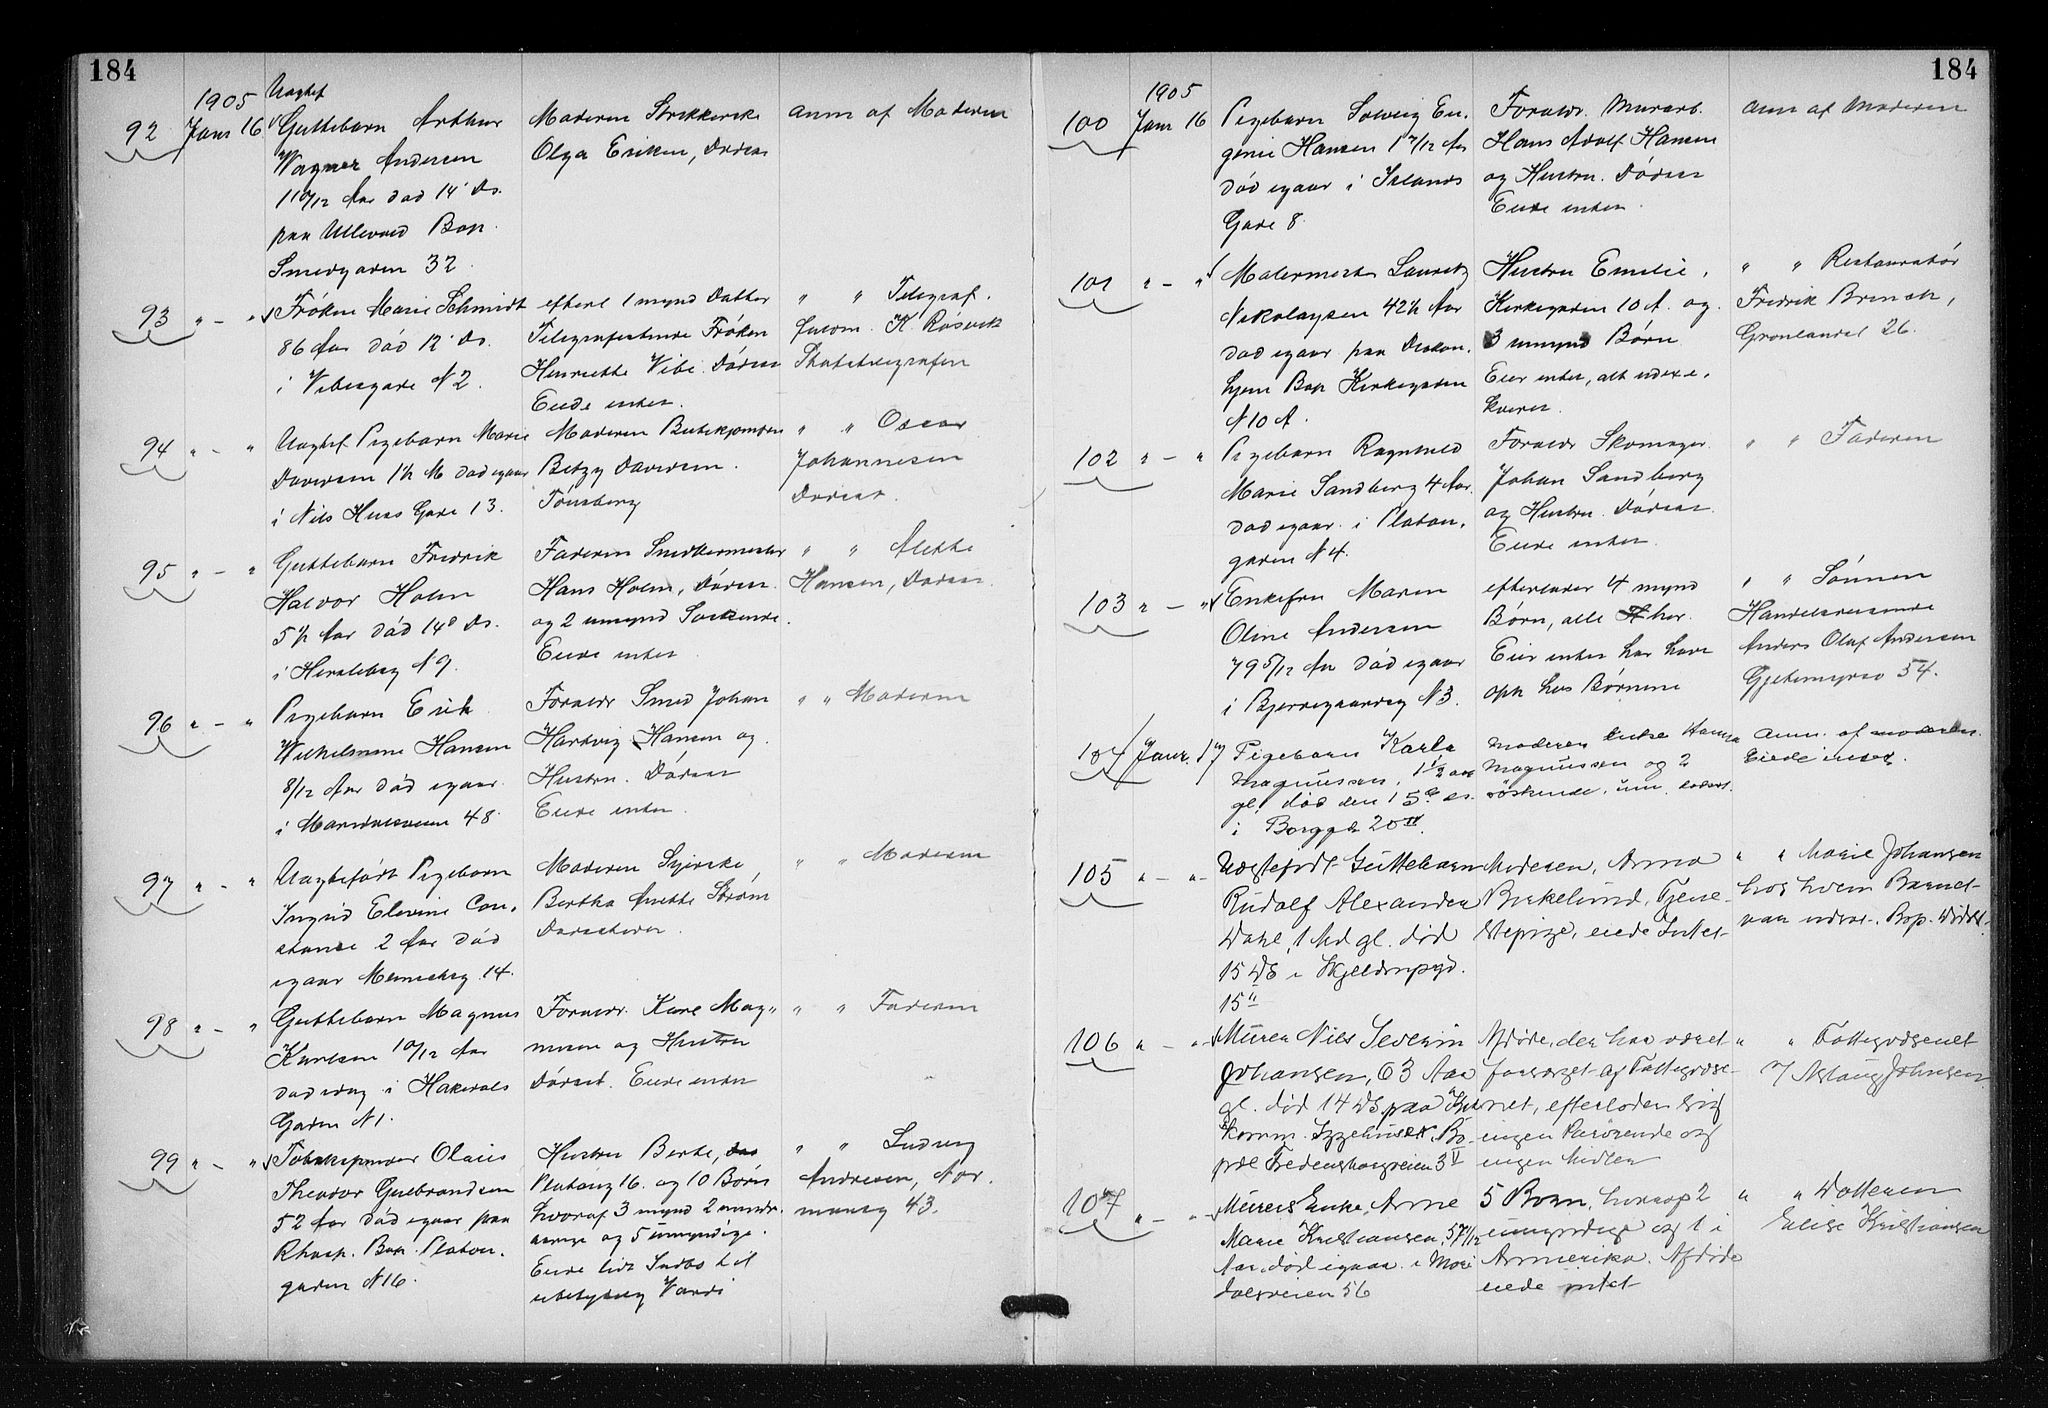 184
1905
92
Janr 16
Uægtef
Guttebarn Arthur
Wagner Andersen
1 10/12 Aar død 14' Ds.
paa Ullevaal Bop.
Smedgaden 32
Moderen Strikkerske
Olga Eriksen, Døds
Anm af Moderen
93
" — "
Frøken Marie Schmidt
86 Aar død 12' Ds.
i Vibesgade N 2.
efterl 1 mynd Datter
Telegrafistinde Frøken
Henriette Vibe. Dødsan
Eiede intet.
" " Telegraf.
K. Røsvik
Statstelegrafen
94
" — "
Uægtef Pigebarn Marie
Davidsen 1½ M død igaar
i Nils Huus Gade 13.
Moderen
Betzy Davidsen.
Tønsberg
" " Oscar
Johannesen
95
" — "
Guttebarn Fredrik
Halvor Holm
5½ Aar død 14' Ds.
i Herslebsg N 9.
Faderen Snedkermester
Hans Holm, Dødsan
og 2 umynd Søskende.
Eiede intet.
" " Alette
Hansen, Dødsan.
96
" — "
Pigebarn Erik
Wilhelmine Hansen
8/12 Aar død igaar
i Maridalsveien 48
Foraldr Smed Johan
Hartvig Hansen og
Hustru. Dødsan
Eiede intet.
" " Moderen
97
" — "
Uægtefødt Pigebarn
Ingrid Elevine Con-
stance 2 Aar død
igaar 14.
Moderen Syerske
Bertha Anette Strøm
" " Moderen
98
" — "
Guttebarn Magnus
Karlsen 10/12 Aar
død idag i Hakedals
Gaden N 1.
Foraldr. Karl Mag-
nusen og Hustru
Dødsat. Eiede intet
" " Faderen
99
" — "
Tobakspinder Olaus
Theodor Gulbrandsen
52 Aar død igaar paa
Rhosp. Bop. Platou-
gaden N 16.
Hustru Berte,
Platoug 16. og 10 Børn
hvoraf 3 mynd 2 mindr.
aarige og 5 umyndige.
Eiede lidt Indbo til
ubetydelig Værdi
" " Ludvig
Andresen, Nor-
mansg 43.
184
1905
100
Janr 16
Pigebarn Solveig Eu-
genie Hansen 1 7/12 Aar
død igaar i Islands
Gade 8.
Foraldr. Murarb.
Hans Adolf Hansen
og Hustru. Dødsan
Eiede intet.
Anm af Moderen
101
" — "
Malermester Lauritz
Nikolaysen 42½ Aar
død igaar paa Diakon-
hjem Bop Kirkegaden
N 10 A.
Hustru Emilie,
Kirkegaden 10 A. og
3 umynd Børn
Eier intet, alt udexe-
kveret.
" " Restauratør
Fredrik Brinch,
Grønlandsl 26.
102
" — "
Pigebarn Ragnhild
Marie Sandberg 4 Aar.
død igaar i Platou-
gaden N 4.
Foraldr Skomager
Johan Sandberg
og Hustru. Dødsan.
Eiede intet.
" " Faderen
103
" — "
Enkefru Maren
Oline Andersen
79 5/12 Aar død igaar
i Bjerregaardsg N 3.
efterlader 4 mynd
Børn, alle her.
Eier intet har havt
oph hos Børnene
" " Sønnen
Handelsreisende
Anders Olaf Andersen
Gjetemyrsv 54.
104
Janr. 17
Pigebarn Karla
Magnussen, 1½ aar
gl. død den 15de ds.
i Borggd 20 IV.
Moderen Enke Hanna
Magnussen og 2
søskende, um.
Anm. af moderen.
Eiede intet.
105
" — "
Uægtefødt Guttebarn
Rudolf Alexander
Dahl, 1 Md gl. død
15 Ds i Skjeldrupgd.
15 II
Moderen, Anna
Birkelund, Tjene-
stepige, eiede Intet
" " Marie Johansen
hos hvem Barnet
var udsat. Bop.
106
" — "
Murer Nils Severin
Johansen, 63 Aar
gl. død 14 Ds paa
Komm. Sygehuset. Bo-
pæl Fredensborgveien 3 V
Afdøde, der har været
forsørget af Fattigvæse-
net, efterlader sig
ingen Paarørende og
ingen Midler
" " Fattigvæsenet
v/ Aslaug Johnsen
107
" — "
Murers Enke, Anne
Marie Kristiansen, 57 1/12
Aar, død igaar i Mari-
dalsveien 56
5 Børn, hvoraf 2
umyndige og 1 i
Amerika. Afdøde
eiede intet
" " Datteren
Elise Kristiansen